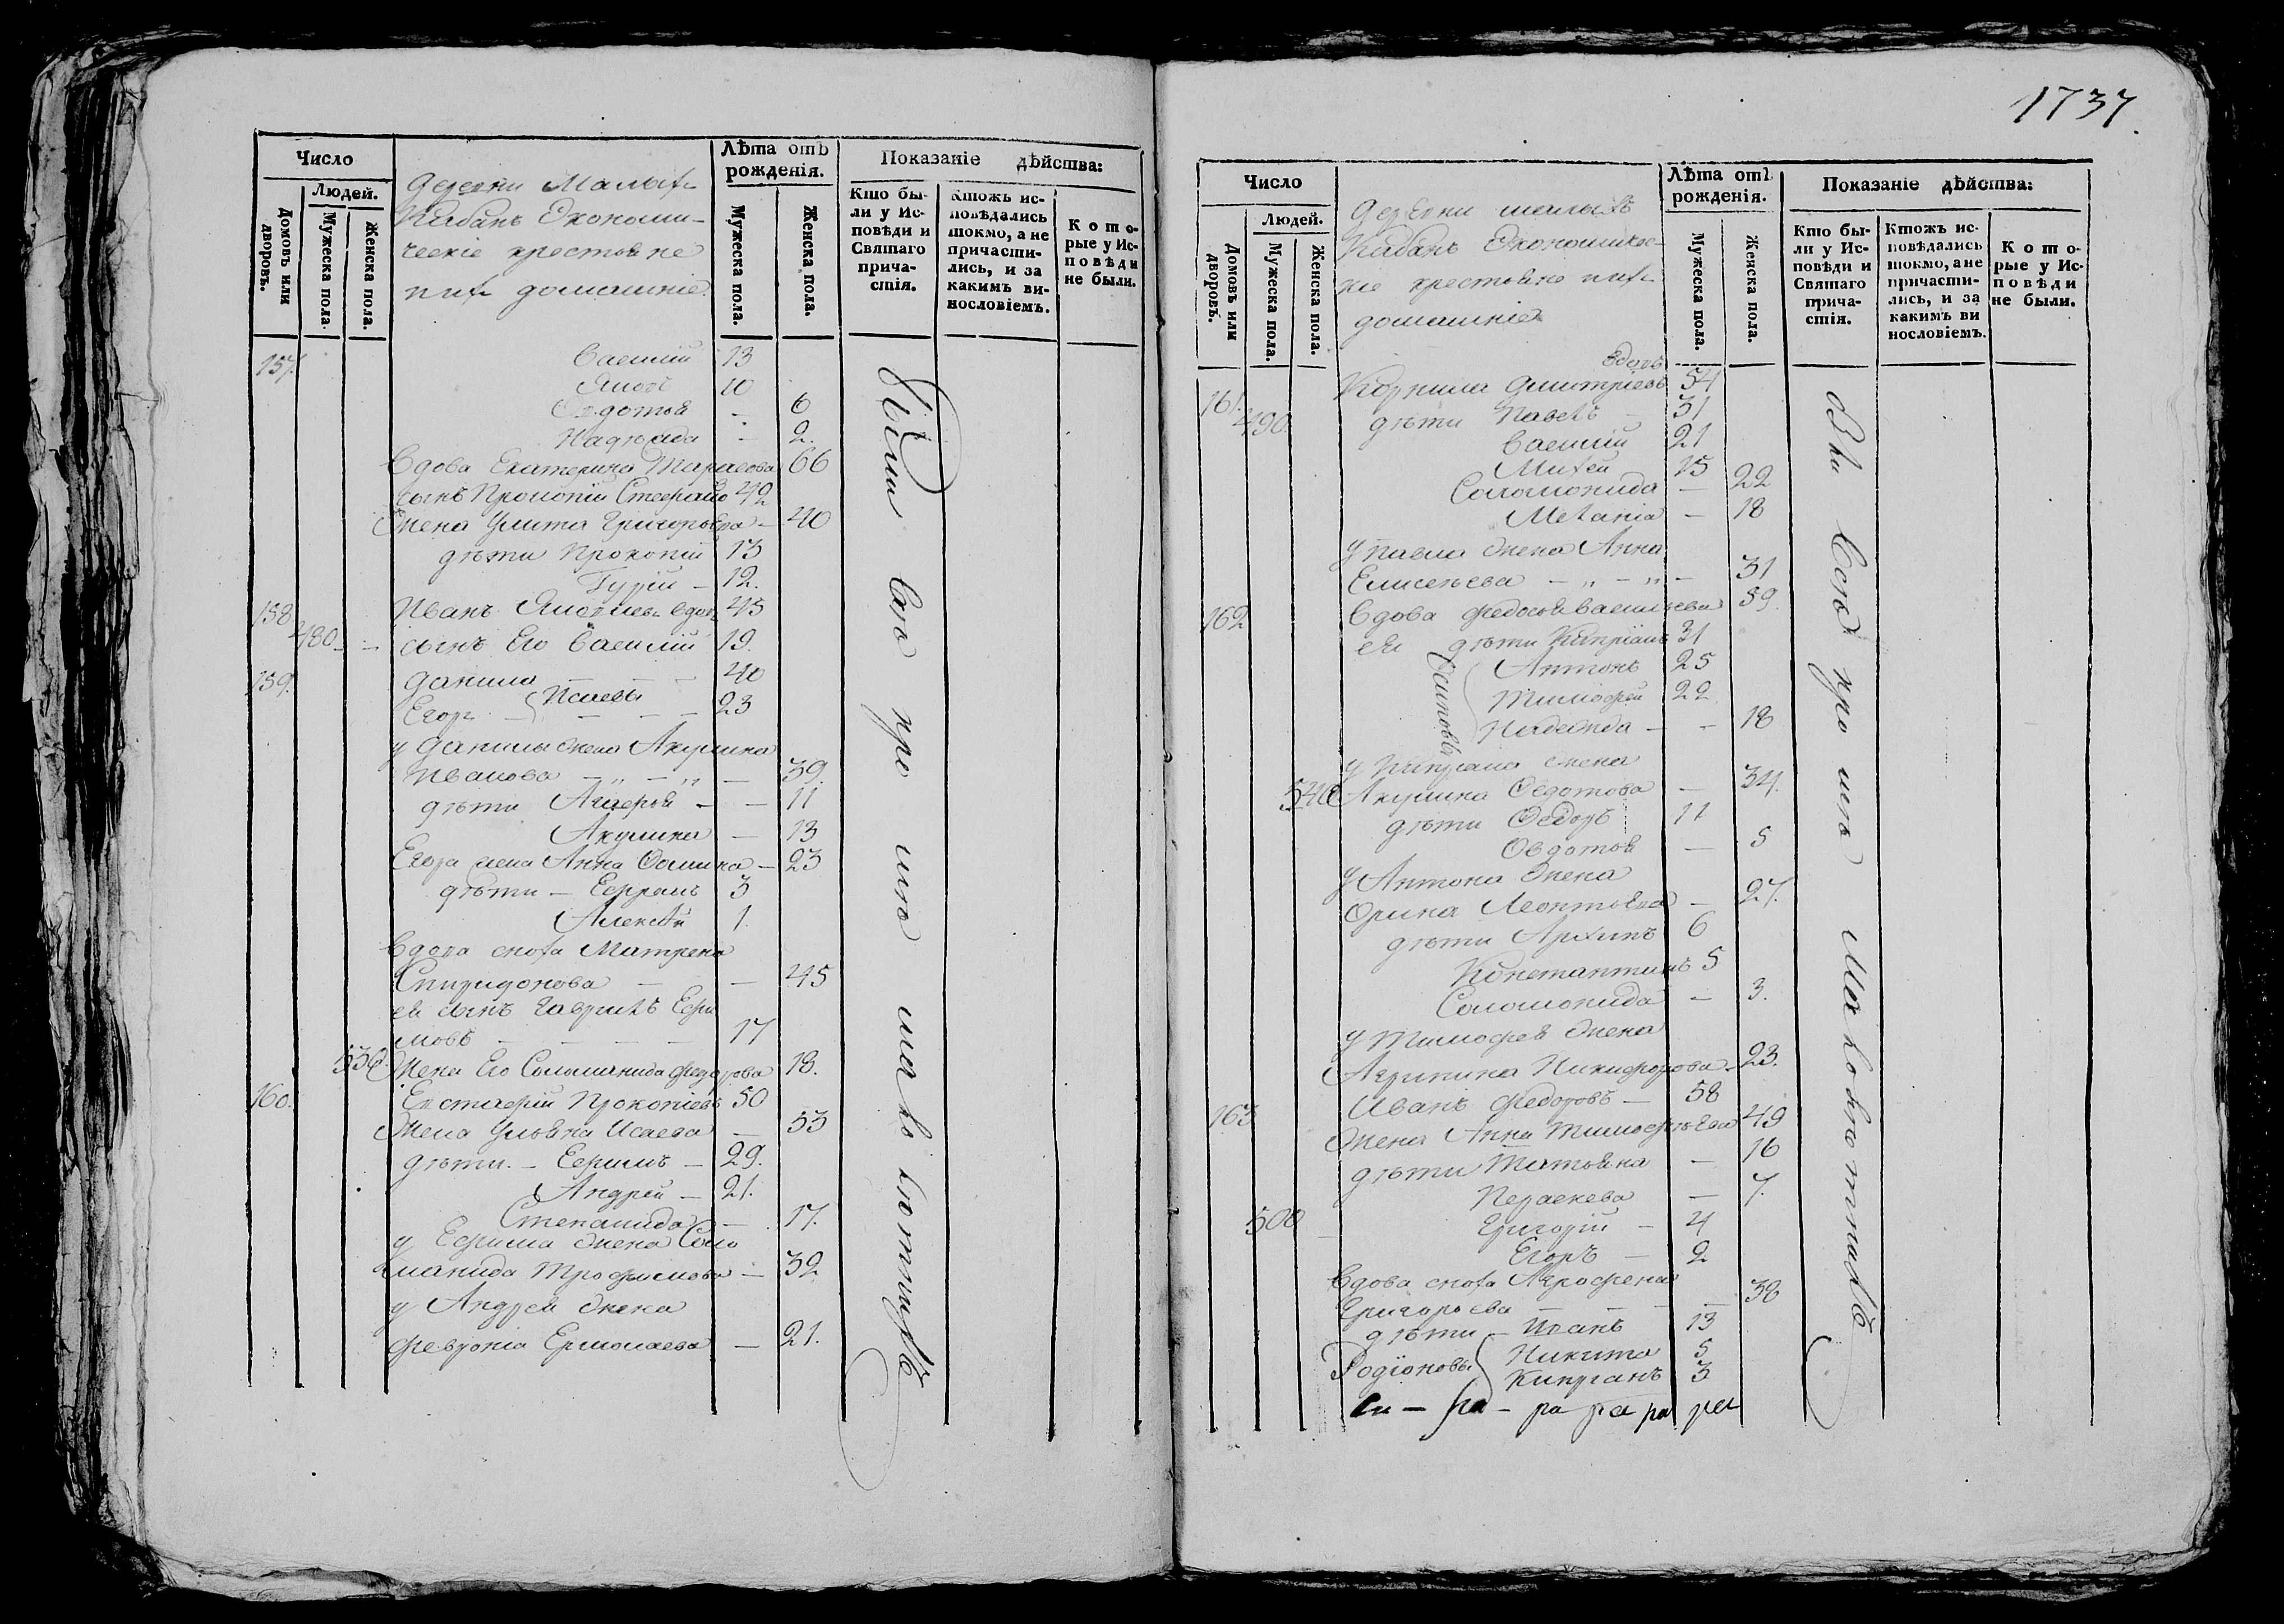 Число
Людей.
Домовъ или дворовъ.
Мужеска пола.
Женска пола.
Деревни Малыхъ
Кабанъ Економи-
ческіе крестьяне
ихъ домашніе
Лѣта отъ рожденія.
Мужеска пола.
Женска пола.
Показаніе дѣйства:
Кто бы-
ли у Ис-
повѣди и
Святаго
прича-
стія.
Ктожъ ис-
повѣдались
токмо, а не
причасти-
лись, и за
какимъ ви-
нословіемъ.
Кото-
рые у Ис-
повѣди
не были.
157. Василий 13
Яковъ 10
Овдотья – 6
Надежда – 2.
Вдова Екатерина Тарасова 66
сынъ Прокопій Стефано 42
Жена Улита Григорьева – 40
дѣти Прокопій 13
Гурій – 12.
158 Иванъ Яковлевъ вдов 45
480 – – сынъ Его Василий 19.
159. Данило – – – 40
Егоръ – Исаевы – – – 23
у Данилы жена Акулина
Иванова – „ – „ – 39.
дѣти Агафья – – 11
Акулина – 13
Егора жена Анна Фомина – 23
дѣти – Ефремъ 3
Алексѣй 1.
Вдова сноха Матрена
Спиридонова – – 45
ея сынъ Гаврилъ Ефи
мовъ – – – – 17
530 Жена Его Соломанида Федорова 18.
160. Евстафій Прокопіевъ 50
Жена Ульяна Исаева – 53
дѣти. – Ефимъ – 29.
Андрей – 21.
Степанида – 17.
у Ефима жена Соло
манида Трофимова – 32
у Андрея жена
Феврония Ермолаева – 21.
1737.
Число
Людей.
Домовъ или дворовъ.
Мужеска пола.
Женска пола.
Деревни малыхъ
Кабанъ Экономичес-
кіе крестьяне ихъ
домашніе
Лѣта отъ рожденія.
Мужеска пола.
Женска пола.
Показаніе дѣйства:
Кто бы-
ли у Ис-
повѣди и
Святаго
прича-
стія.
Ктожъ ис-
повѣдались
токмо, а не
причасти-
лись, и за
какимъ ви
нословіемъ.
Кото-
рые у Ис-
повѣди
не были.
вдовъ
161. Корнила Дмитріевъ 54
490. дѣти Павелъ – 31
Василий 21
Михей 15
Соломонида – 22
Меланія – 18
у Павла жена Анна
Елисеьева – „ – „ – 31
162 Вдова Федосья Васильева 59.
ея дѣти Кипріанъ 31
Антонъ 25
Тимофей 22
Надежда – – 18
Осиповы
у Кипріана жена
540 Акулина Федотова – 34.
дѣти Федоръ 11
Овдотья – 5
у Антона жена
Орина Леонтьева – 27.
дѣти Архипъ 6
Константинъ 5
Соломонида – 3.
у Тимофея жена
Агрипина Никифорова – 23.
163 Иванъ Федоровъ – 58
Жена Анна Тимофѣева 49
дѣти Татьяна – 16
Параскева – 7.
500 Григорій – 4
Егоръ – 2
Вдова сноха Агрофена
Григорьева – – – – 38
дѣти – Иванъ 13
Родіоновы Никита 5
Кипріанъ 3